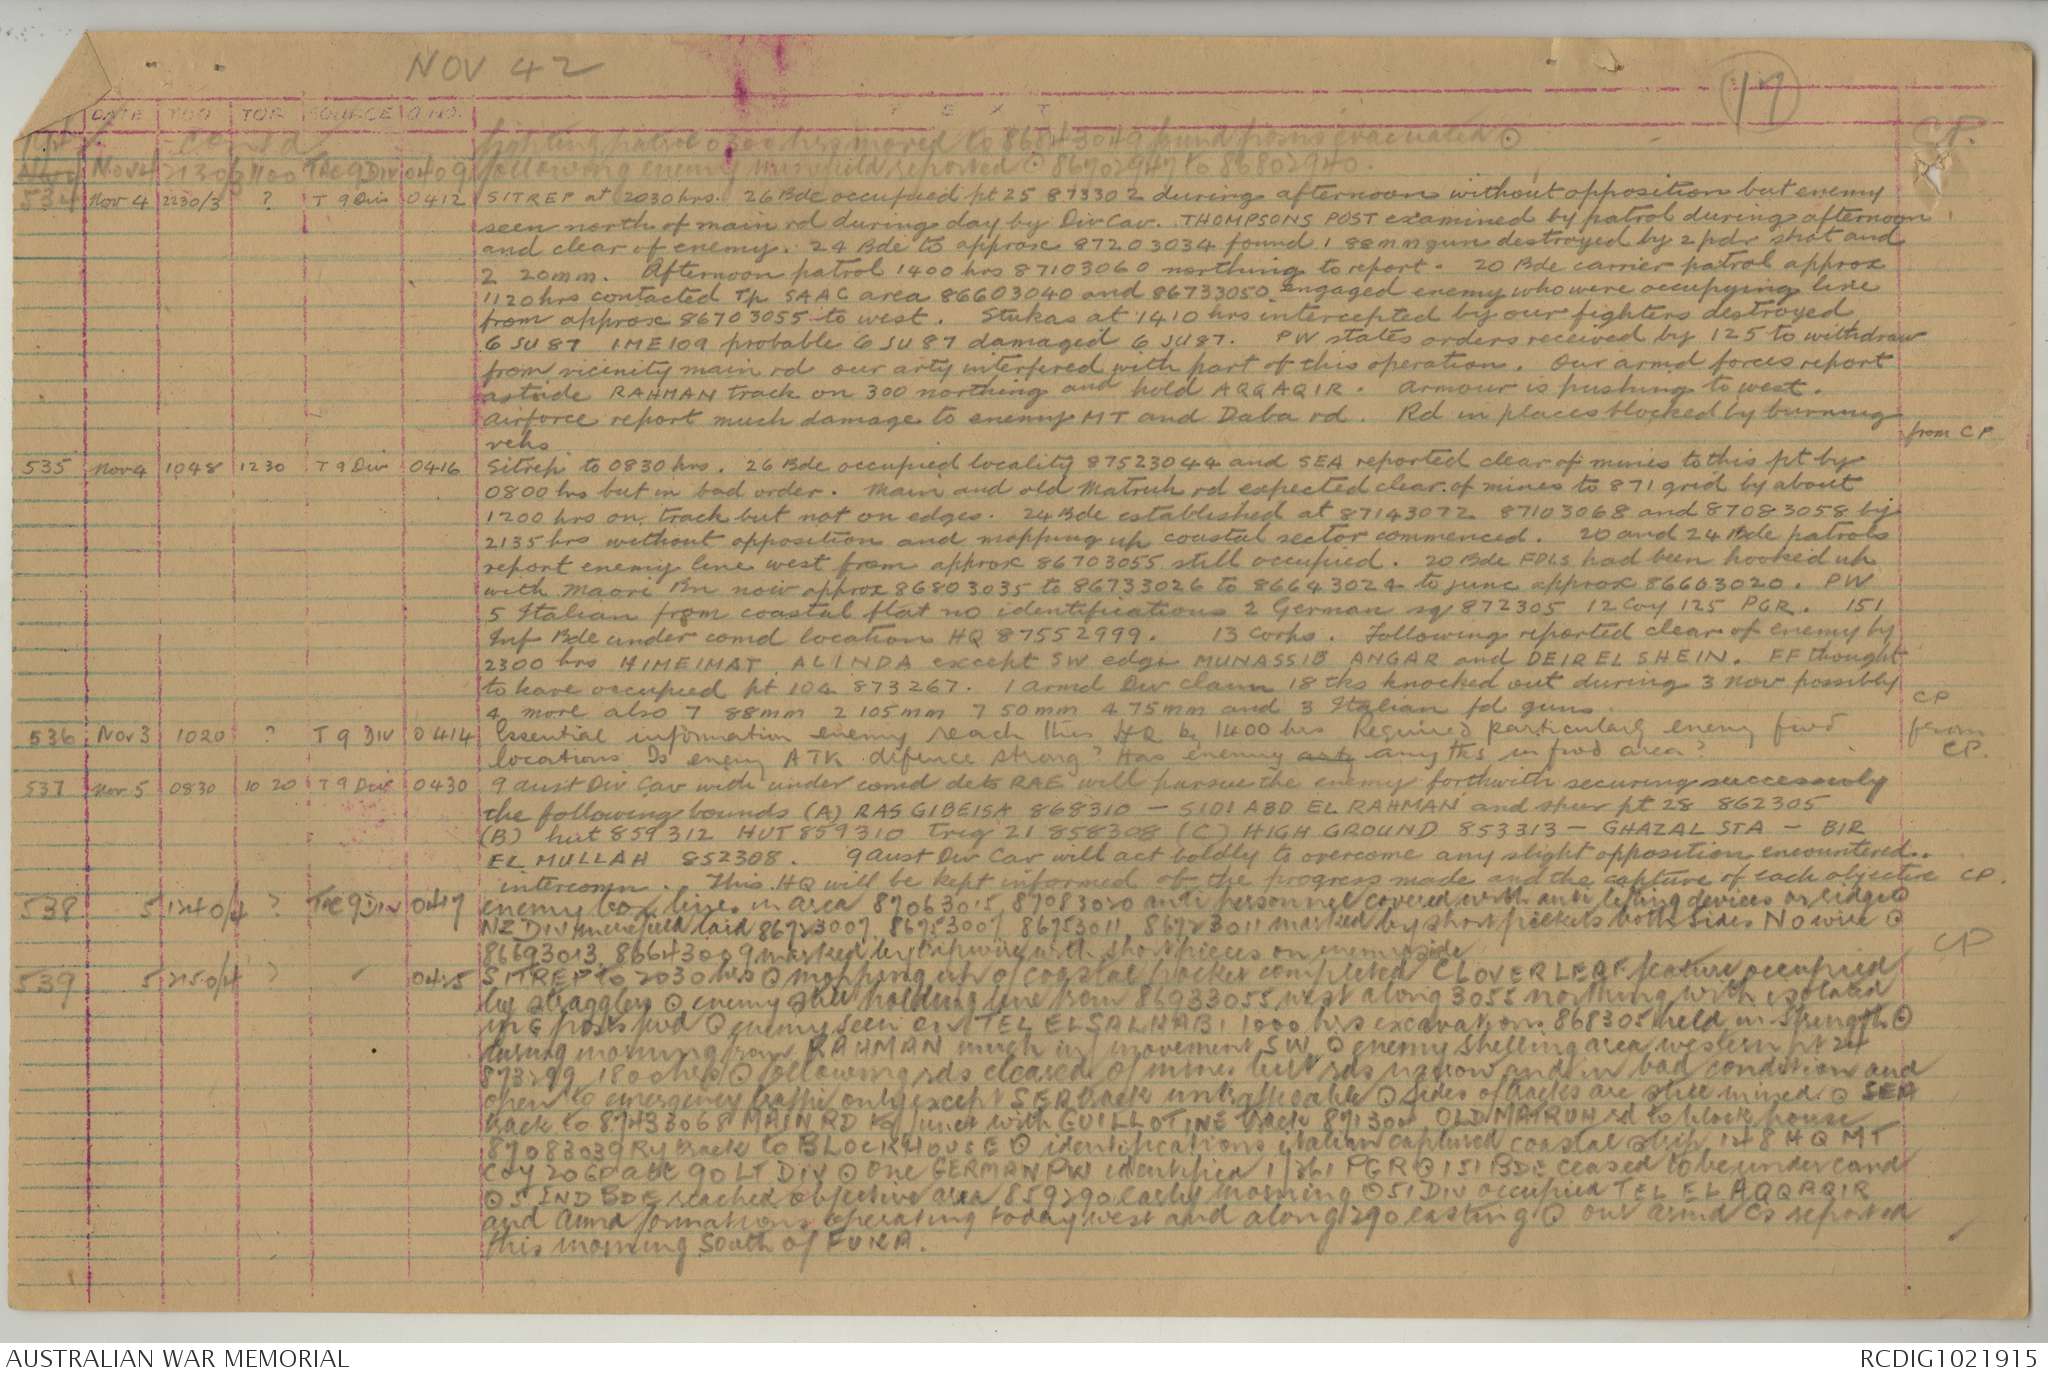 NOV 42
17
DATE TOO TOR SOURCE O.NO. T E X T
contd fighting patrol 0300 hrs moved to 86843049 found posns evacuated ⊙ CP.
Nov 4 2130/3 1100 TAC 9 DIV 0409 following enemy minefield reported ⊙ 86702947 to 86802940.
534 Nov 4 2230/3 ? T 9 Div 0412 SITREP at 2030 hrs. 26 Bde occupied pt 25 873302 during afternoon without opposition but enemy
seen north of main rd during day by Div Cav. THOMPSONS POST examined by patrol during afternoon
and clear of enemy. 24 Bde to approx 87203034 found 1 88mm gun destroyed by 2 pdr shot and
2 20mm. Afternoon patrol 1400 hrs 87103060 northing to report. 20 Bde carrier patrol approx
1120 hrs contacted Tp SAAC area 86603040 and 86733050 engaged enemy who were occupying line
from approx 86703055 to west. Stukas at 1410 hrs intercepted by our fighters destroyed
6 JU 87 1 ME 109 probable 6 JU 87 damaged 6 JU 87. PW states orders received by 125 to withdraw
from vicinity main rd our arty interfered with part of this operation. Our armd forces report
astride RAHMAN track on 300 northing and hold AQQAQIR. Armour is pushing to west.
Airforce report much damage to enemy MT and Daba rd. Rd in places blocked by burning
vehs from CP
535 Nov 4 1048 1230 T 9 Div 0416 Sitrep to 0830 hrs. 26 Bde occupied locality 87523044 and SEA reported clear of mines to this pt by
0800 hrs but in bad order. Main and old Matruh rd expected clear of mines to 871 grid by about
1200 hrs on track but not on edges. 24 Bde established at 87143072 87103068 and 87083058 by
2135 hrs without opposition and mopping up coastal sector commenced. 20 and 24 Bde patrols
report enemy line west from approx 86703055 still occupied. 20 Bde FDLS had been hooked up
with Maori Bn now approx 86803035 to 86733026 to 86643024 to junc approx 86603020. PW
5 Italian from coastal flat no identifications 2 German sq 872305 12 Coy 125 PGR. 151
Inf Bde under comd location HQ 87552999. 13 Corps. Following reported clear of enemy by
2300 hrs HIMEIMAT ALINDA except SW edge MUNASSIB ANGAR and DEIR EL SHEIN. FF thought
to have occupied pt 104 873267. 1 Armd Div claim 18 tks knocked out during 3 Nov possibly
4 more also 7 88mm 2 105mm 7 50mm 4 75mm and 3 Italian fd guns. CP
536 Nov 3 1020 ? T 9 DIV 0414 Essential information enemy reach this HQ by 1400 hrs Required particularly enemy fwd from
locations Is enemy ATK defence strong? Has enemy arty any tks in fwd area? CP.
537 Nov. 5 0830 10 20 T 9 Div 0430 9 Aust Div Cav with under comd dets RAE will pursue the enemy forthwith securing successively
the following bounds (A) RAS GIBEISA 868310 – SIDI ABD EL RAHMAN and spur pt 28 862305
(B) hut 859312 HUT 859310 Trig 21 858308 (C) HIGH GROUND 853313 – GHAZAL STA – BIR
EL MULLAH 852308. 9 Aust Div Cav will act boldly to overcome any slight opposition encountered.
intercomn. This HQ will be kept informed of the progress made and the capture of each objective CP.
538 5 1240/4 ? TAC 9 DIV 0417 enemy box line in area 87063015 87083020 anti personnel covered with anti lifting devices on ridge ⊙
NZ DIV minefield laid 86723007 86753007 86753011 86723011 marked by short pickets both sides No wire ⊙
86693013 86643009 marked by tripwire with short pieces on enemy side CP
539 5 2150/4 ? 0425 SITREP to 2030 hrs ⊙ mopping up of coastal pocket completed CLOVERLEAF feature occupied
by stragglers ⊙ enemy still holding line from 86933055 west along 3055 northing with isolated
MG posts fwd ⊙ enemy seen on TEL EL SALHABI 1000 hrs excavations 868305 held in strength ⊙
during morning from RAHMAN much inf movement SW ⊙ enemy shelling area western pt 24
873299 1800 hrs ⊙ following rds cleared of mines but rds narrow and in bad condition and
open to emergency traffic only except SEA track untrafficable ⊙ sides of tracks are still mined ⊙ SEA
track to 87433068 MAIN RD to junct with GUILLOTINE track 871304 OLD MATRUH rd to block house
87083039 Ry track to BLOCKHOUSE ⊙ identifications italian captured coastal strip 148 HQ MT
Coy 206 90 LT DIV ⊙ one GERMAN PW identified 1/361 PGR ⊙ 151 BDE ceased to be under comd
⊙ 5 IND BDE reached objective area 859290 early morning ⊙ 51 DIV occupied TEL EL AQQAQIR
and Armd formations operating today west and along 290 easting ⊙ our armd Cs reported
this morning South of FUKA.
AUSTRALIAN WAR MEMORIAL RCDIG1021915